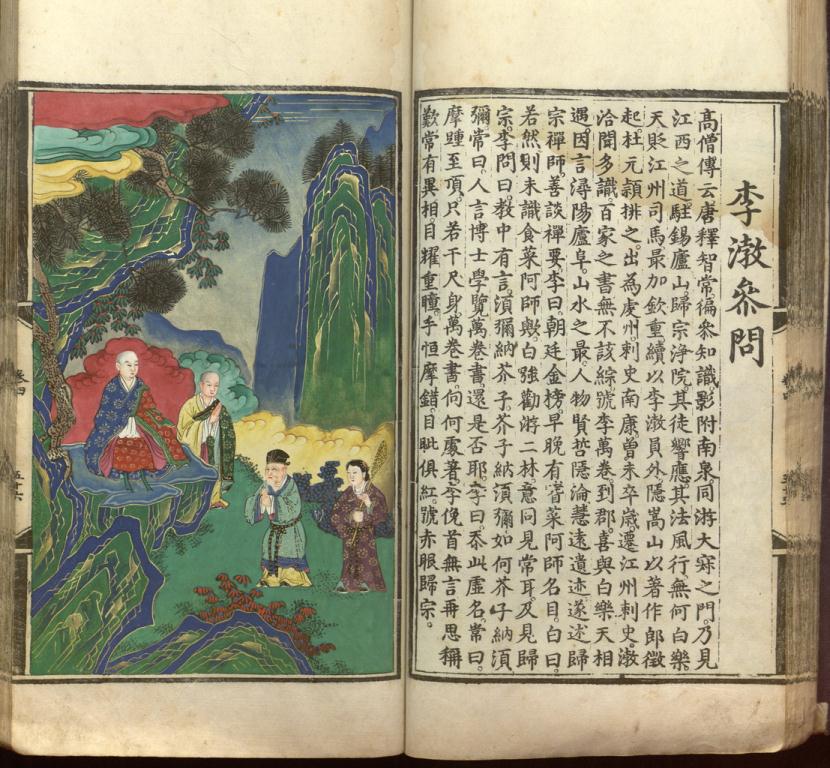 李渤叅問
高僧傳云。唐釋智常。徧叅知識。影附南泉。同游大寂之門。乃見
江西之道。駐錫廬山歸宗淨院。其徒響應。其法風行。無何白樂
天貶江州司馬。最加欽重。續以李渤員外。隱嵩山。以著作郎徵
起。杜元頴排之。出為虔州刺史。南康曾未卒歲。遷江州刺史。渤
洽聞多識。百家之書。無不該綜。號李萬卷。到郡喜與白樂天相
遇。因言潯陽廬阜。山水之最。人物賢哲隱淪。慧遠遺迹。遂述歸
宗禪師。善談禪要。李曰。朝廷金榜。早晚有嗜菜阿師名目。白曰。
若然則未識食菜阿師歟。白強勸游二林。意同見常耳。及見歸
宗。李問曰。教中有言。須彌納芥子。芥子納須彌。如何芥子納須
彌。常曰。人言博士學覽萬卷書。還是否耶。李曰。忝此虛名。常曰。
摩踵至頂。只若干尺身。萬卷書。向何處著。李俛首無言。再思稱
歎。常有異相。目耀重瞳。手恒摩錯。目眦俱紅。號赤眼歸宗。
卷四
五十六